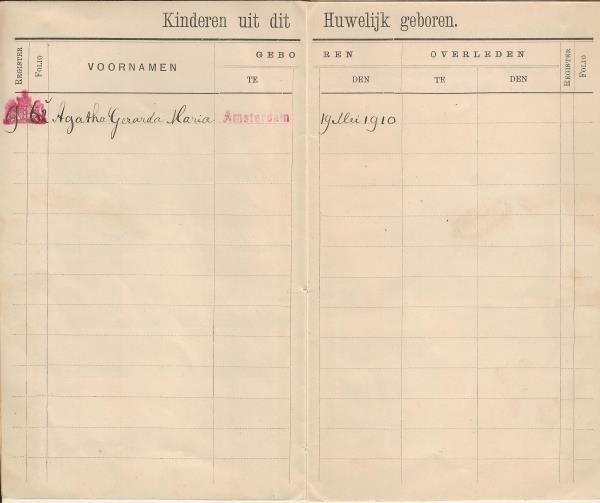 Kinderen uit dit Huwelijk geboren.
REGISTER FOLIO VOORNAMEN GEBOREN OVERLEDEN REGISTER FOLIO
TE DEN TE DEN
Agatha Gerarda Maria Amsterdam 19 Mei 1910